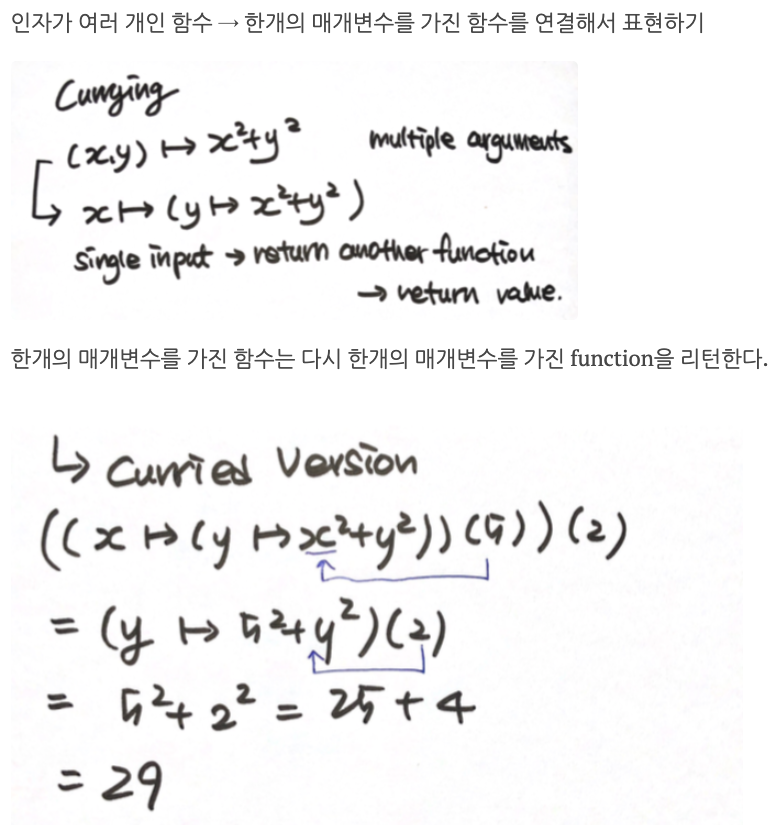 인자가 여러 개인 함수 → 한개의 매개변수를 가진 함수를 연결해서 표현하기
Currying
(x,y) ↦ x²+y² multiple arguments
↳ x ↦ (y ↦ x²+y²)
single input → return another function
→ return value.
한개의 매개변수를 가진 함수는 다시 한개의 매개변수를 가진 function을 리턴한다.
↳ Curried Version
((x ↦ (y ↦ x²+y²))(5))(2)
= (y ↦ 5²+y²)(2)
= 5²+2² = 25+4
= 29